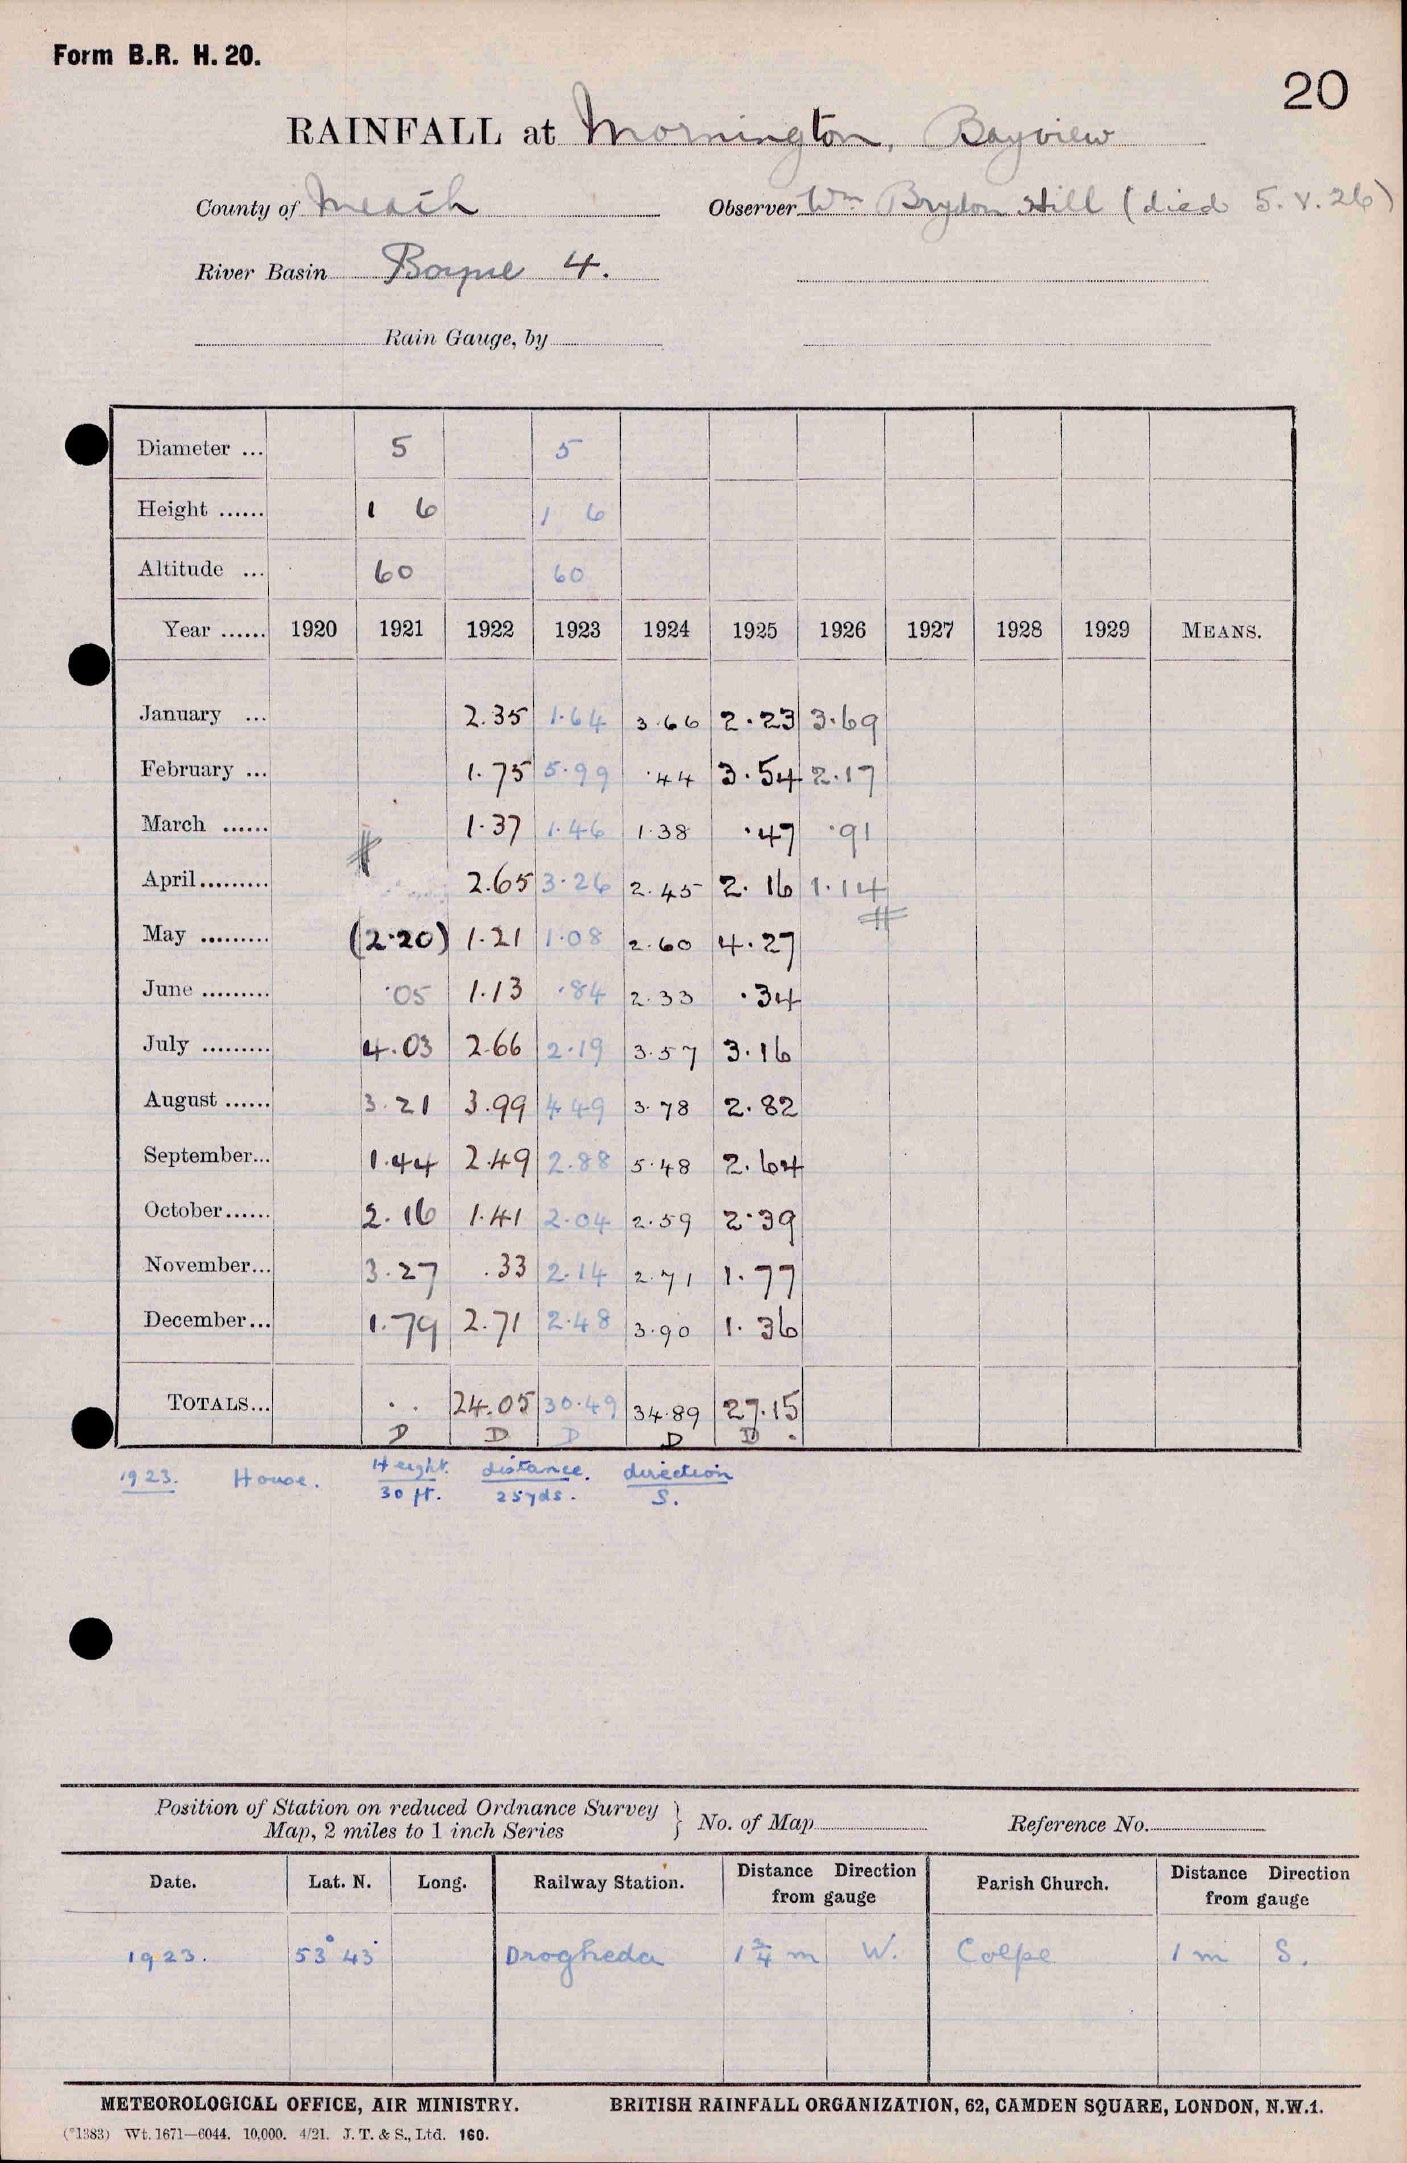 Form B.R. H. 20.
20
RAINFALL at Mornington, Bayview
County of Meath Observer Wm Brydon Hill (died 5.V.26)
River Basin Boyne 4.
Rain Gauge, by
Diameter ... 5 5
Height ...... 1 6 1 6
Altitude ... 60 60
Year ...... 1920 1921 1922 1923 1924 1925 1926 1927 1928 1929 MEANS.
January ... 2.35 1.64 3.66 2.23 3.69
February ... 1.75 5.99 .44 3.54 2.17
March ...... 1.37 1.46 1.38 .47 .91
April ......... 2.65 3.26 2.45 2.16 1.14
May ......... (2.20) 1.21 1.08 2.60 4.27
June ......... .05 1.13 .84 2.33 .34
July ......... 4.03 2.66 2.19 3.57 3.16
August ...... 3.21 3.99 4.49 3.78 2.82
September... 1.44 2.49 2.88 5.48 2.64
October...... 2.16 1.41 2.04 2.59 2.39
November... 3.27 .33 2.14 2.71 1.77
December... 1.79 2.71 2.48 3.90 1.36
TOTALS... .. 24.05 30.49 34.89 27.15
D D D D D
1923. House. Height. distance. direction
30 ft. 25yds. S.
Position of Station on reduced Ordnance Survey
Map, 2 miles to 1 inch Series } No. of Map Reference No.
Date. Lat. N. Long. Railway Station. Distance Direction from gauge Parish Church. Distance Direction from gauge
1923. 53° 43' Drogheda 1 3/4 m W. Colpe 1 m S.
METEOROLOGICAL OFFICE, AIR MINISTRY. BRITISH RAINFALL ORGANIZATION, 62, CAMDEN SQUARE, LONDON, N.W.1.
(*1383) Wt. 1671—6044. 10,000. 4/21. J. T. & S., Ltd. 160.